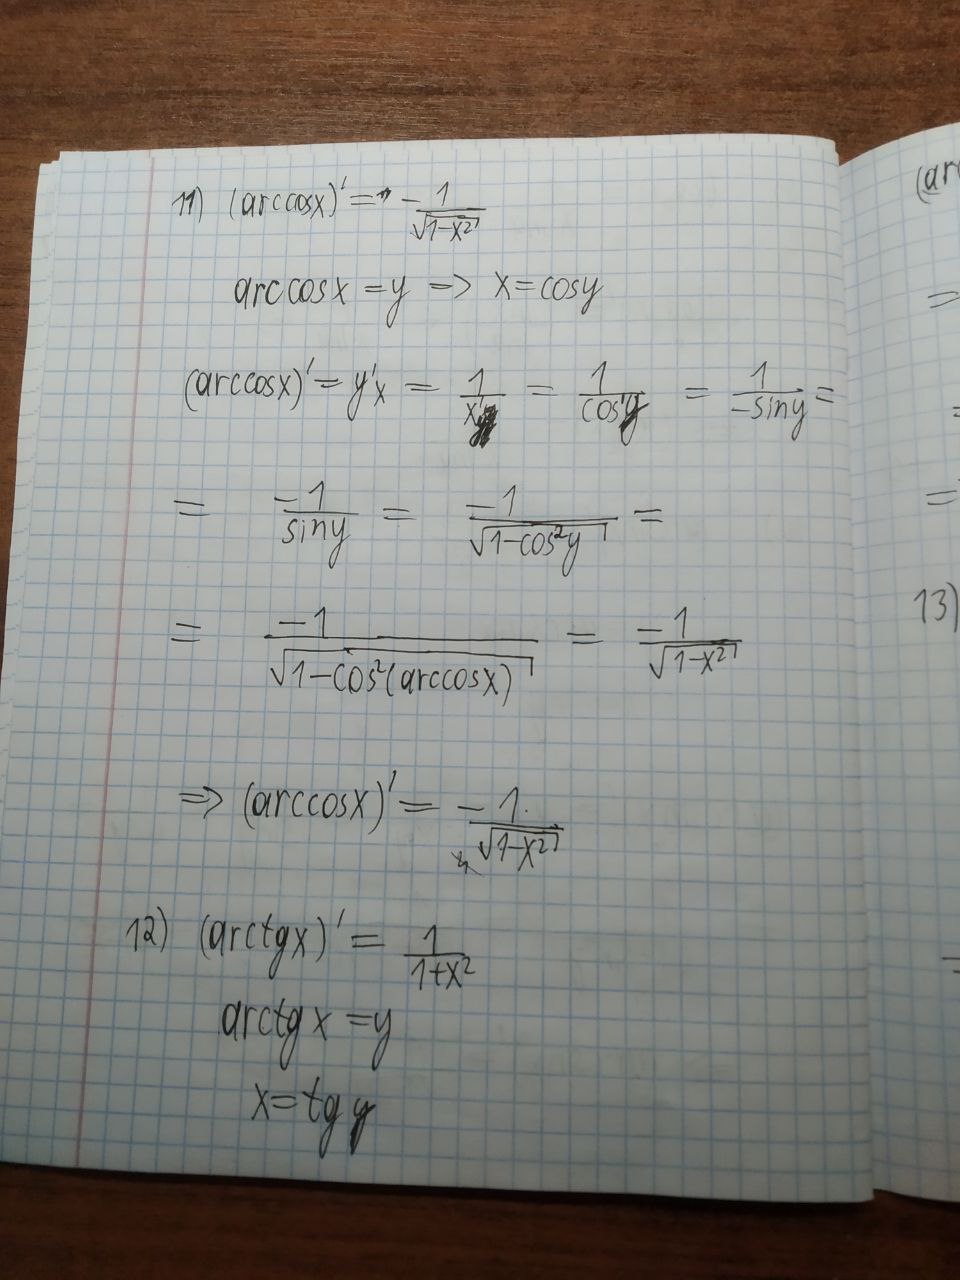 11) (arccosx)' = - 1/√(1-x²)
arccosx = y => x = cosy
(arccosx)' = y'x = 1/x'y = 1/cos'y = 1/-siny =
= -1/siny = -1/√(1-cos²y) =
= -1/√(1-cos²(arccosx)) = -1/√(1-x²)
=> (arccosx)' = - 1/√(1-x²)
12) (arctgx)' = 1/(1+x²)
arctgx = y
x = tgy
(ar
=
=
=
13)
=